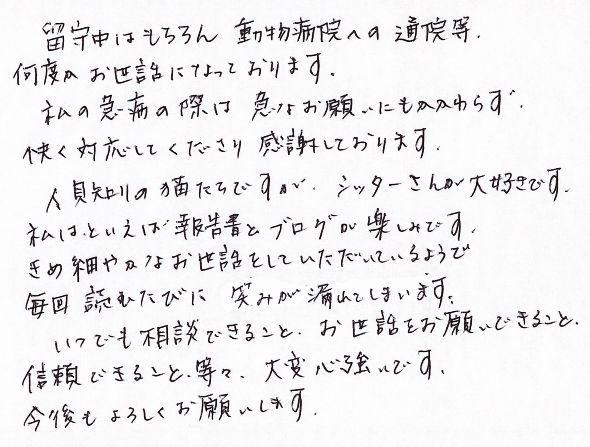 留守中はもちろん 動物病院への通院等、
何度かお世話になっております。
私の急病の際は 急なお願いにもかかわらず、
快く対応してくださり 感謝しております。
人見知りの猫たちですが、シッターさんが大好きです。
私はといえば 報告書とブログが楽しみです。
きめ細やかなお世話をしていただいているようで
毎回 読むたびに 笑みが漏れてしまいます。
いつでも相談できること、お世話をお願いできること、
信頼できること、等々、大変心強いです。
今後もよろしくお願いします。